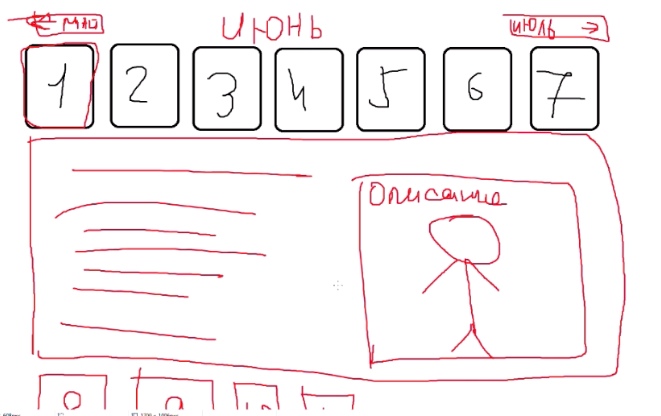 ← май ИЮНЬ июль →
1 2 3 4 5 6 7
Описание